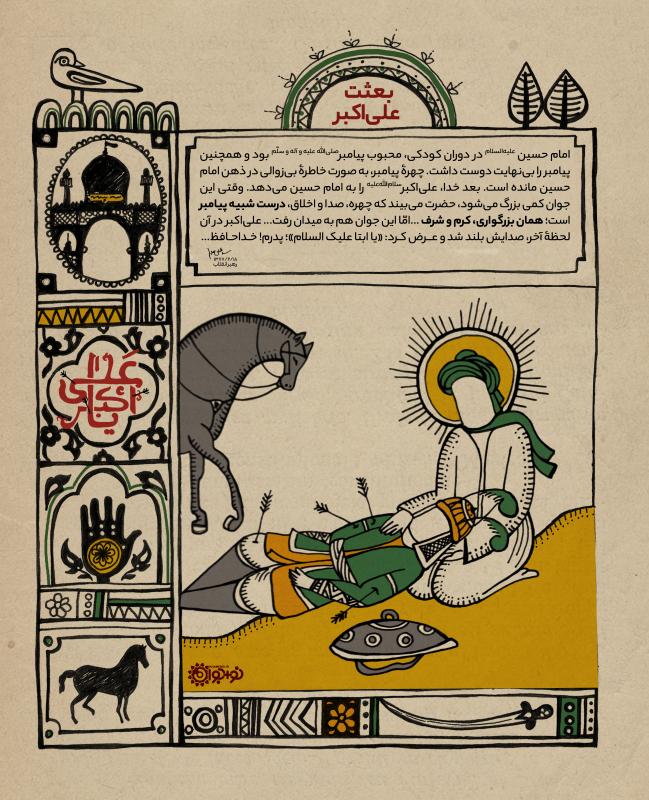 بعثت
علی‌اکبر
امام حسین علیه‌السلام در دوران کودکی، محبوب پیامبر صلی‌الله علیه و آله و سلّم بود و همچنین
پیامبر را بی‌نهایت دوست داشت. چهرهٔ پیامبر، به صورت خاطرهٔ بی‌زوالی در ذهن امام
حسین مانده است. بعد خدا، علی‌اکبر سلام‌الله‌علیه را به امام حسین می‌دهد. وقتی این
جوان کمی بزرگ می‌شود، حضرت می‌بیند که چهره، صدا و اخلاق، درست شبیه پیامبر
است؛ همان بزرگواری، کرم و شرف ...امّا این جوان هم به میدان رفت... علی‌اکبر در آن
لحظهٔ آخر، صدایش بلند شد و عـرض کـرد: «یا ابتا علیک السلام»؛ پدرم! خـداحـافظ...
۱۳۷۷/۲/۱۸
رهبر انقلاب
نوجوان